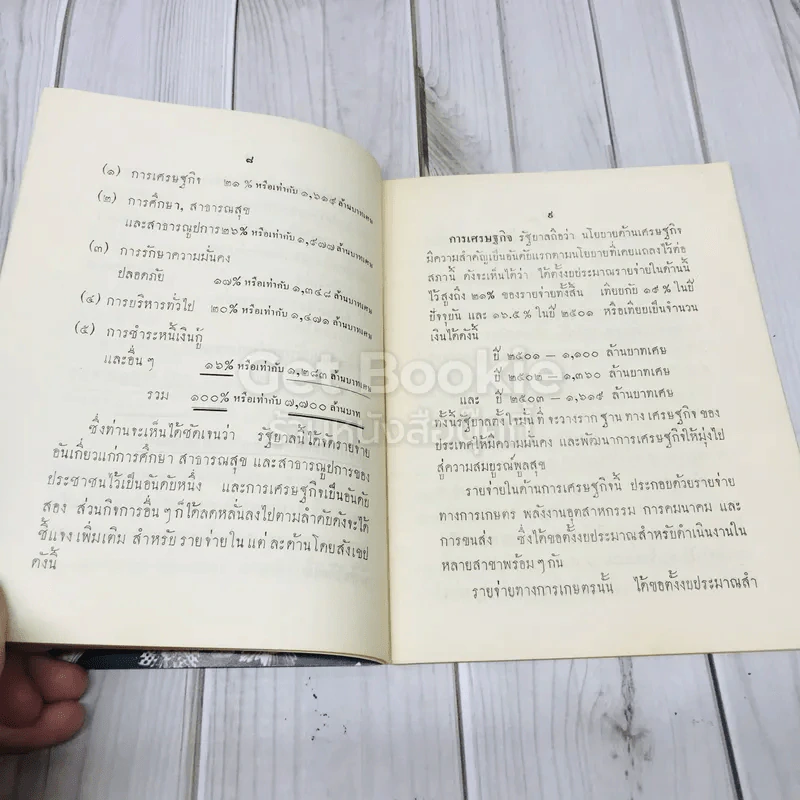 ๘
(๑) การเศรษฐกิจ ๒๑ % หรือเท่ากับ ๑,๖๑๙ ล้านบาทเศษ
(๒) การศึกษา, สาธารณสุข
และสาธารณูปการ ๒๖% หรือเท่ากับ ๑,๙๗๗ ล้านบาทเศษ
(๓) การรักษาความมั่นคง
ปลอดภัย ๑๗% หรือเท่ากับ ๑,๓๔๘ ล้านบาทเศษ
(๔) การบริหารทั่วไป ๒๐% หรือเท่ากับ ๑,๔๗๑ ล้านบาทเศษ
(๕) การชำระหนี้เงินกู้
และอื่น ๆ ๑๖% หรือเท่ากับ ๑,๒๘๓ ล้านบาทเศษ
รวม ๑๐๐% หรือเท่ากับ ๗,๗๐๐ ล้านบาท
ซึ่งท่านจะเห็นได้ชัดเจนว่า รัฐบาลนี้ได้จัดรายจ่าย
อันเกี่ยวแก่การศึกษา สาธารณสุข และสาธารณูปการของ
ประชาชนไว้เป็นอันดับหนึ่ง และการเศรษฐกิจเป็นอันดับ
สอง ส่วนกิจการอื่น ๆ ก็ได้ลดหลั่นลงไปตามลำดับดังจะได้
ชี้แจงเพิ่มเติม สำหรับรายจ่ายในแต่ละด้านโดยสังเขป
ดังนี้
๙
การเศรษฐกิจ รัฐบาลถือว่า นโยบายด้านเศรษฐกิจ
มีความสำคัญเป็นอันดับแรกตามนโยบายที่เคยแถลงไว้ต่อ
สภานี้ ดังจะเห็นได้ว่า ได้ตั้งงบประมาณรายจ่ายในด้านนี้
ไว้สูงถึง ๒๑% ของรายจ่ายทั้งสิ้น เทียบกับ ๑๙ % ในปี
ปัจจุบัน และ ๑๖.๕ % ในปี ๒๕๐๑ หรือเทียบเป็นจำนวน
เงินได้ดังนี้
ปี ๒๕๐๑ — ๑,๑๐๐ ล้านบาทเศษ
ปี ๒๕๐๒ — ๑,๓๖๐ ล้านบาทเศษ
และ ปี ๒๕๐๓ — ๑,๖๑๙ ล้านบาทเศษ
ทั้งนี้รัฐบาลตั้งใจมั่นที่จะวางรากฐานทางเศรษฐกิจของ
ประเทศให้มีความมั่นคง และพัฒนาการเศรษฐกิจให้มุ่งไป
สู่ความสมบูรณ์พูลสุข
รายจ่ายในด้านการเศรษฐกิจนี้ ประกอบด้วยรายจ่าย
ทางการเกษตร พลังงานอุตสาหกรรม การคมนาคม และ
การขนส่ง ซึ่งได้ขอตั้งงบประมาณสำหรับดำเนินงานใน
หลายสาขาพร้อม ๆ กัน
รายจ่ายทางการเกษตรนั้น ได้ขอตั้งงบประมาณสำ
Get Bookie
ร้านหนังสือกู๊ดบุ๊ค